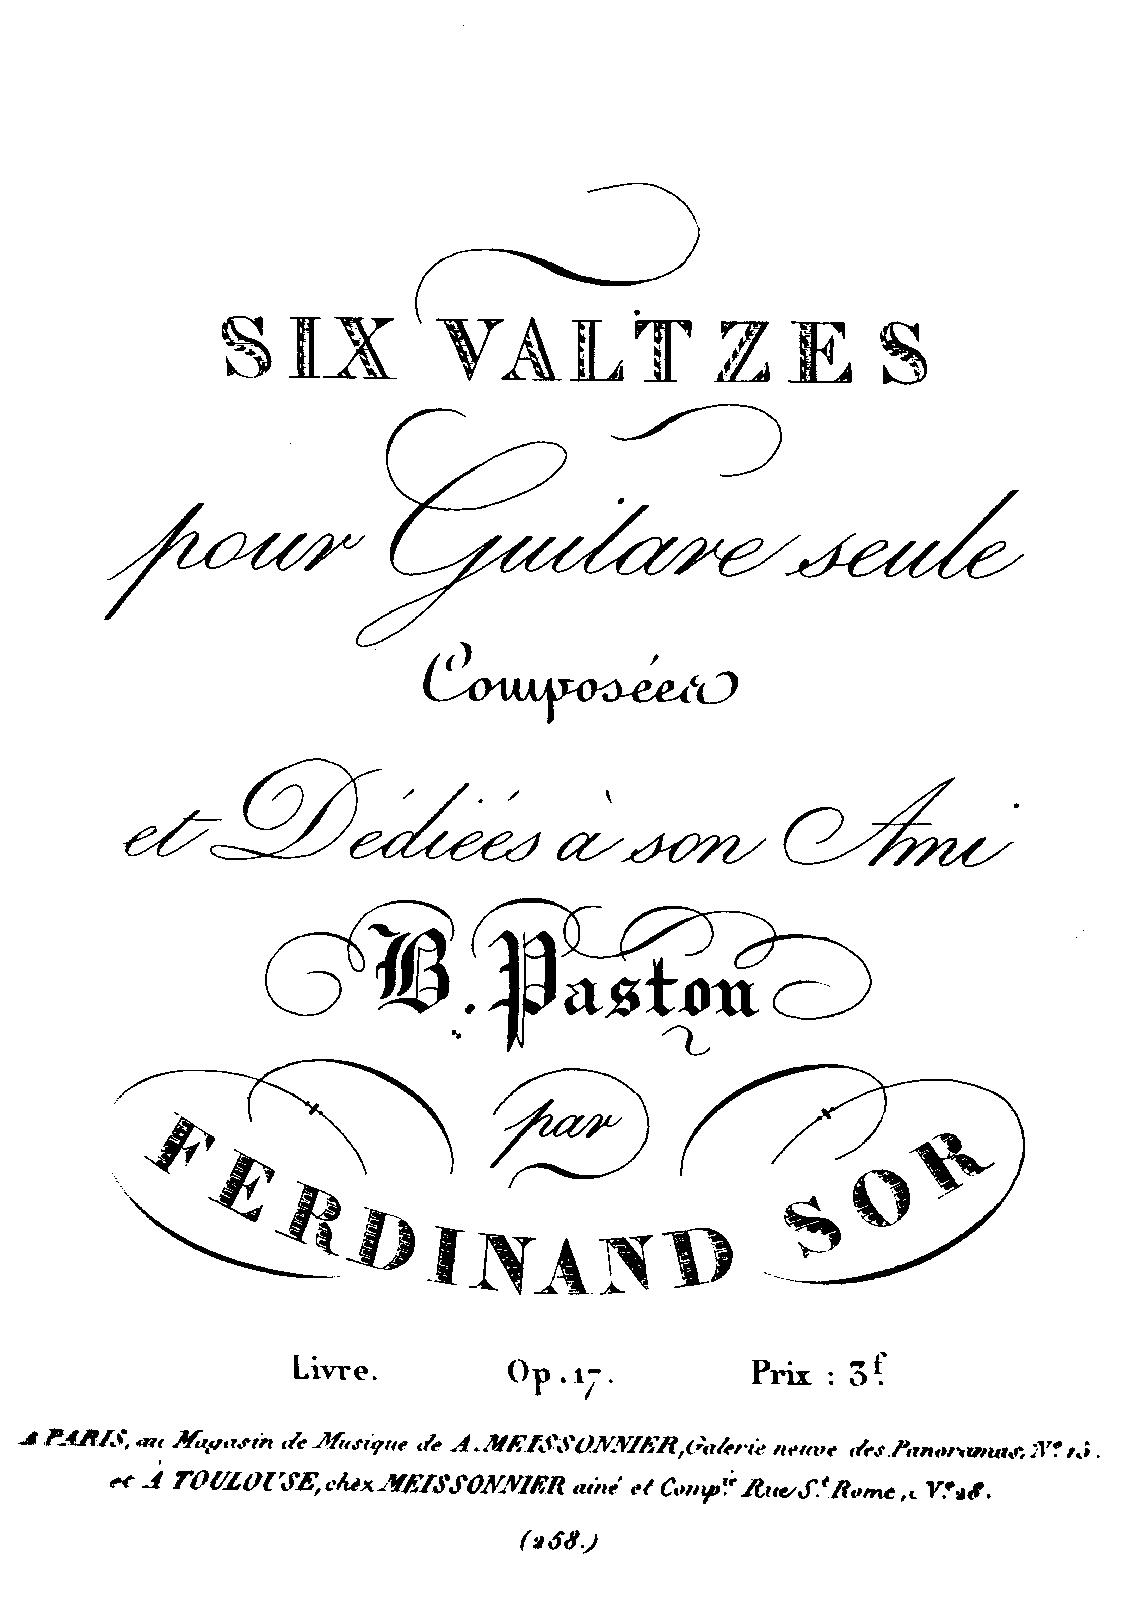 SIX VALTZES
pour Guitare seule
Composées
et Dédiées à son Ami
B. Pastou
par
FERDINAND SOR
Livre. Op. 17. Prix : 3f.
A PARIS, au Magasin de Musique de A. MEISSONNIER, Galerie neuve des Panoramas, No. 15.
et À TOULOUSE, chez MEISSONNIER ainé et Compie. Rue St. Rome,
(258.)